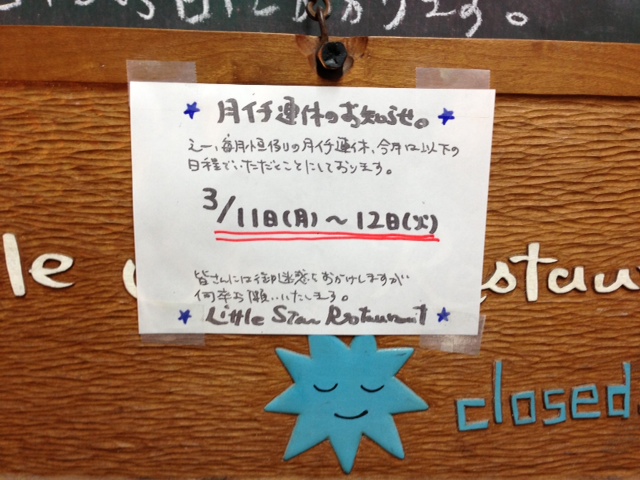 月イチ連休のお知らせ。
えー、毎月恒例の月イチ連休、今月は以下の
日程でいただくことにしております。
3/11日(月)～12日(火)
皆さんには御迷惑をおかけしますが
何卒お願いいたします。
Little Star Restaurant
le
staur
closed.